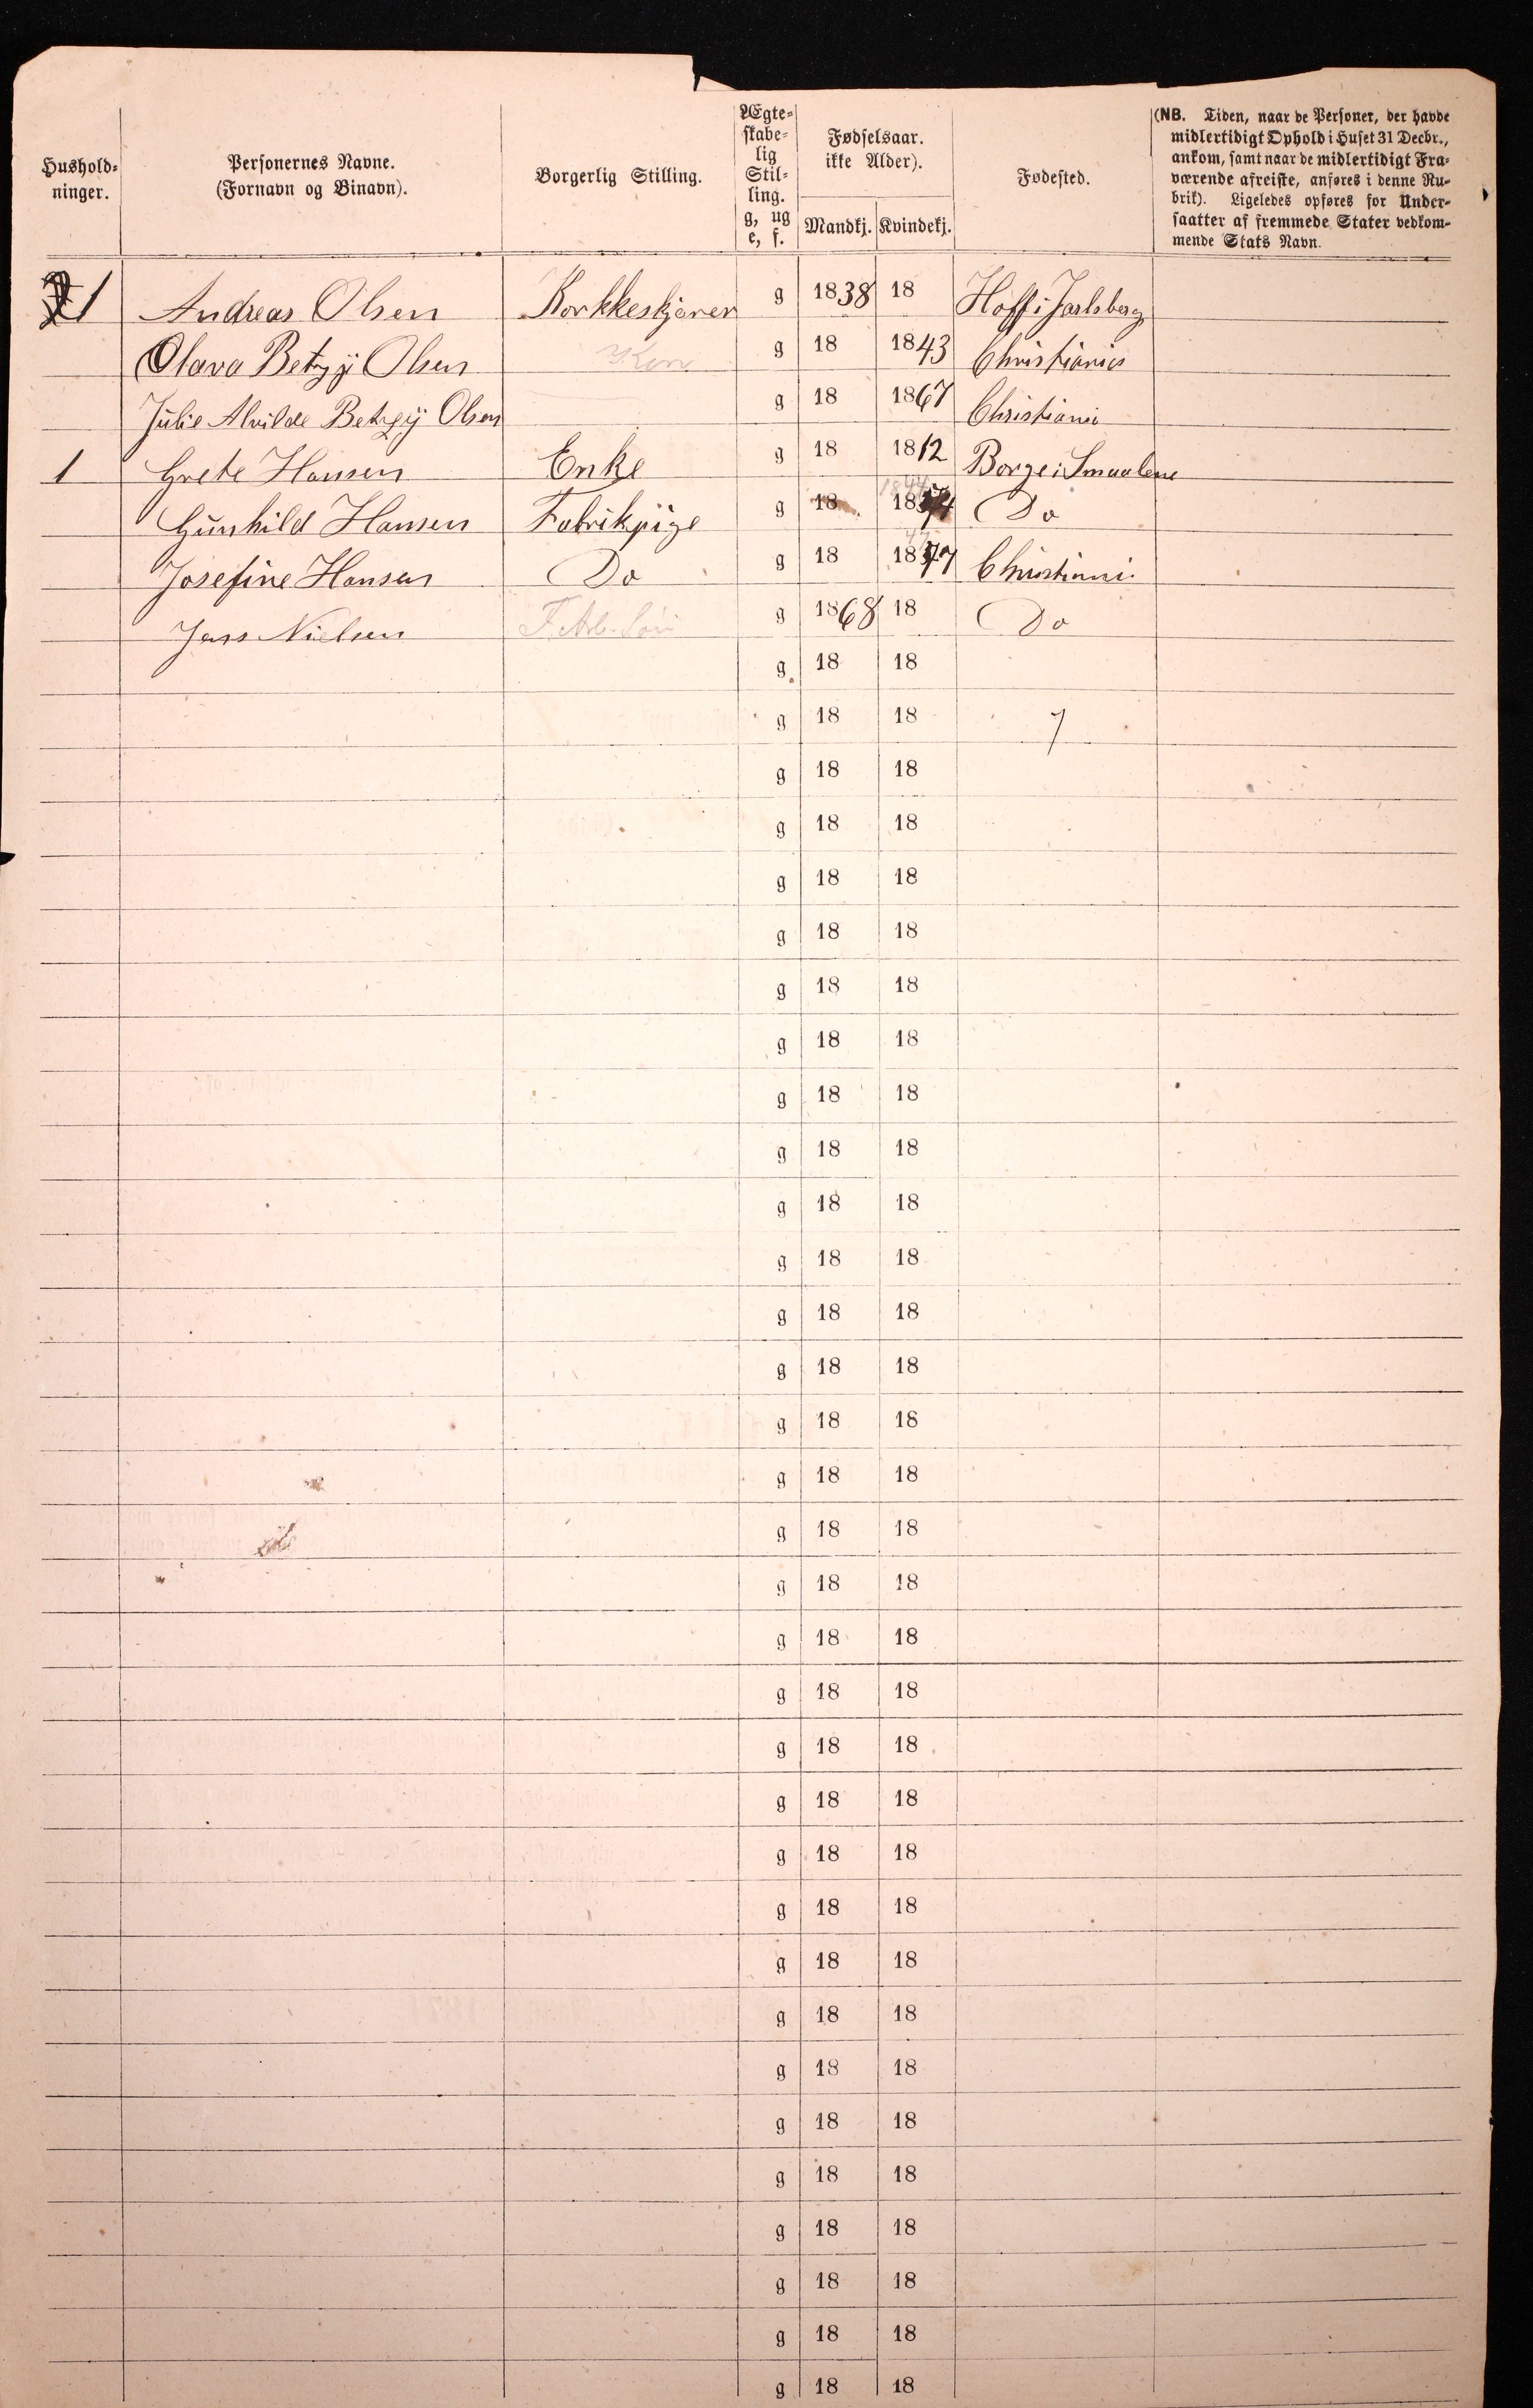 Hushold-
ninger.
Personernes Navne.
(Fornavn og Binavn).
Borgerlig Stilling.
Ægte-
skabe-
lig
Stil-
ling.
g, ug
e, f.
Fødselsaar.
ikke Alder).
Mandkj. Kvindekj.
Fødested.
(NB. Tiden, naar de Personer, der havde
midlertidigt Ophold i Huset 31 Decbr.,
ankom, samt naar de midlertidigt Fra-
værende afreiste, anføres i denne Ru-
brik). Ligeledes opføres for Under-
saatter af fremmede Stater vedkom-
mende Stats Navn.
1 Andreas Olsen Korkkeskjærer g 1838 18 Hoff i Jarlsberg
Olava Betzÿ Olsen Kone g 18 1843 Christiania
Julie Alvilde Betzÿ Olsen g 18 1867 Christiania
1 Grete Hansen Enke g 18 1812 Borge i Smaalene
Gunhild Hansen Fabrikpige g 18 1844 Do
Josefine Hansen Do g 18 1847 Christiani
Jens Nielsen g 1868 18 Do
g 18 18
g 18 18 7
g 18 18
g 18 18
g 18 18
g 18 18
g 18 18
g 18 18
g 18 18
g 18 18
g 18 18
g 18 18
g 18 18
g 18 18
g 18 18
g 18 18
g 18 18
g 18 18
g 18 18
g 18 18
g 18 18
g 18 18
g 18 18
g 18 18
g 18 18
g 18 18
g 18 18
g 18 18
g 18 18
g 18 18
g 18 18
g 18 18
g 18 18